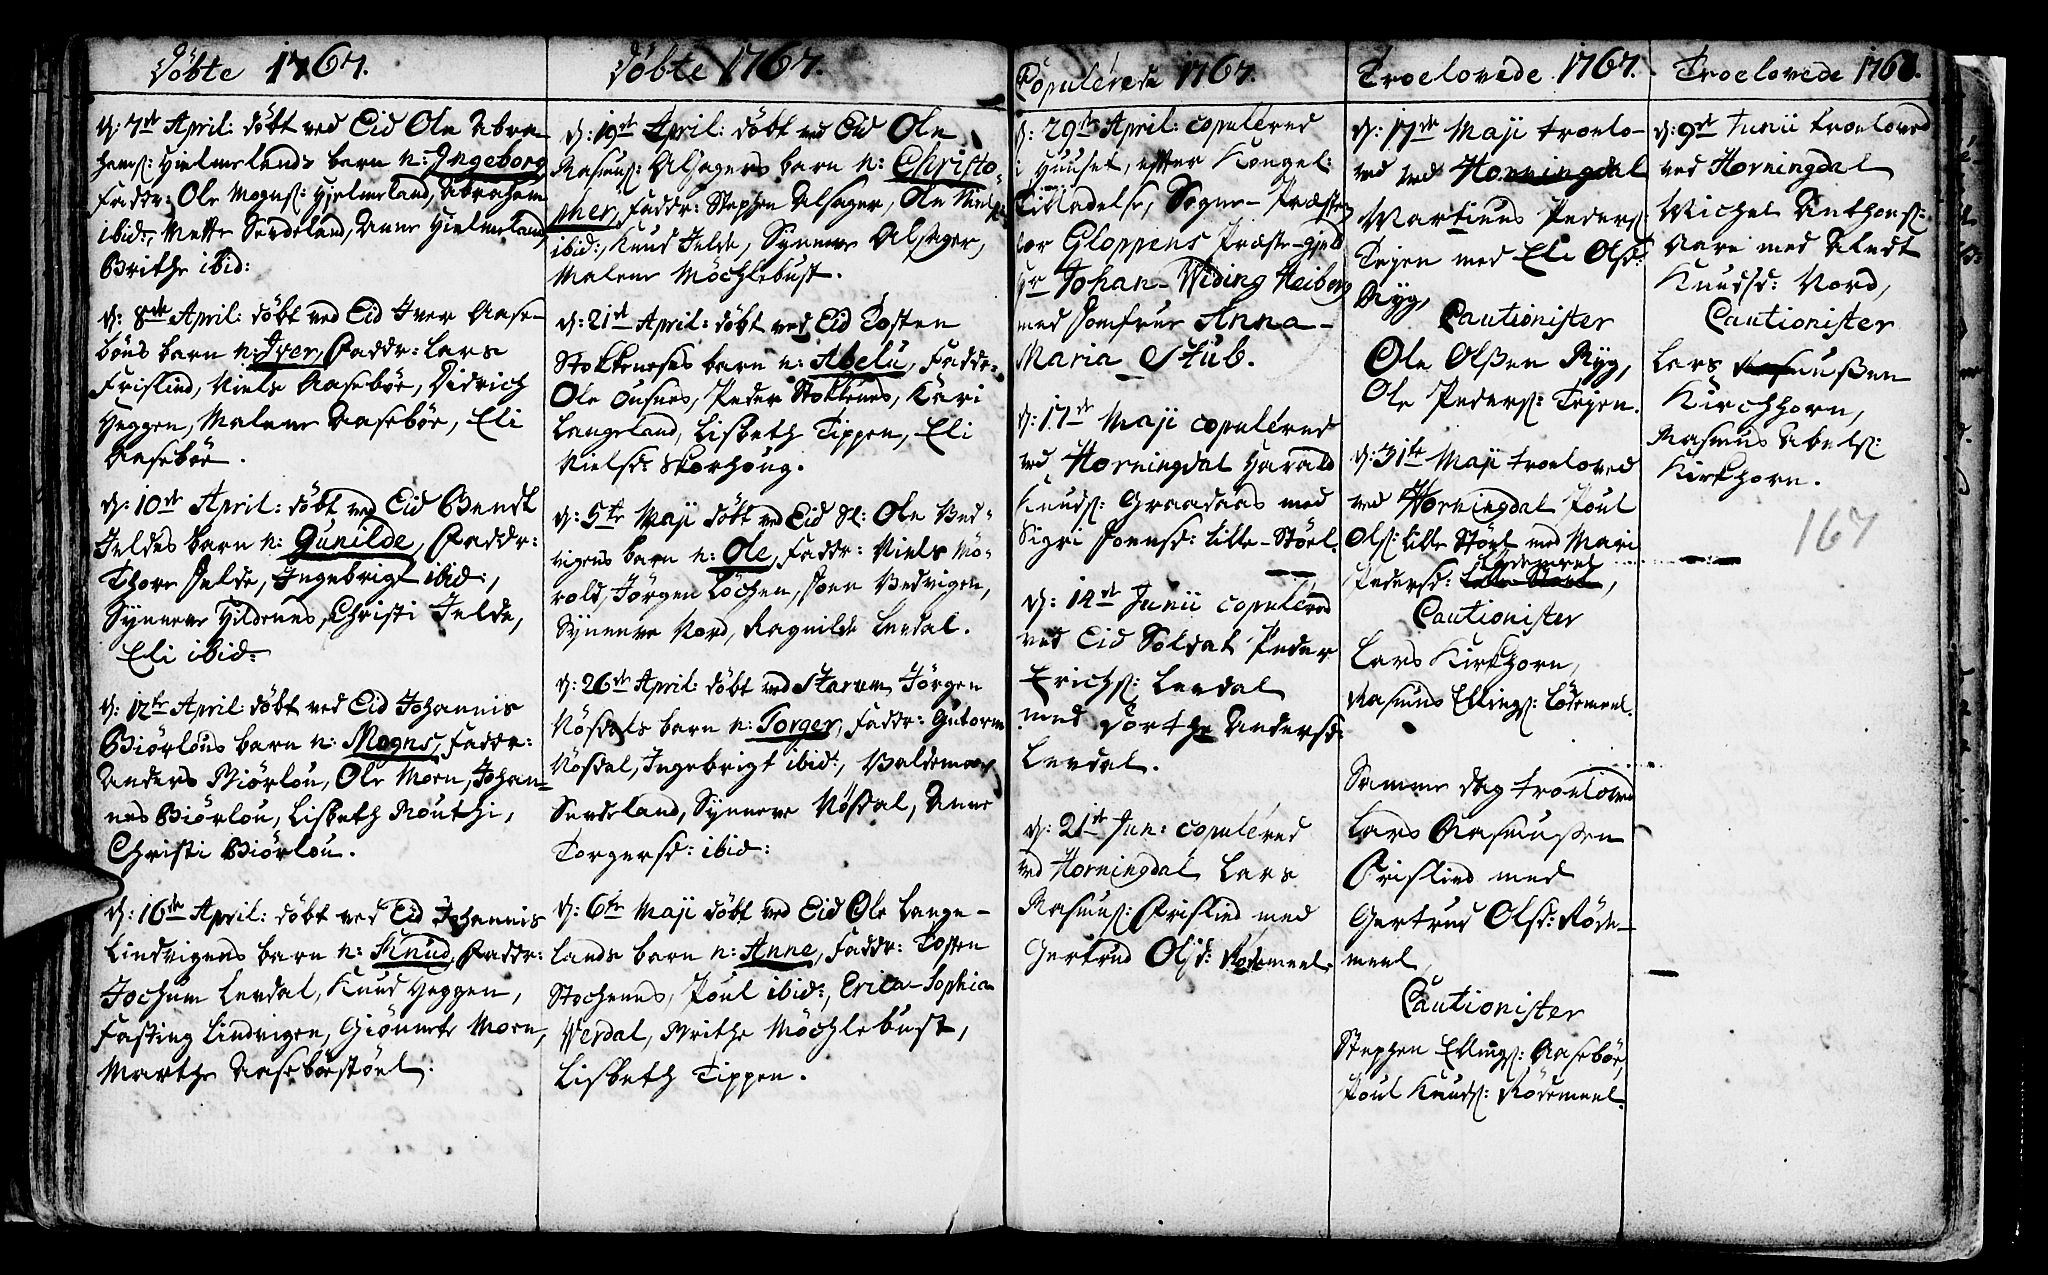 Döbte 1767.
d: 7de April: döbt ved Eid Ole Abra-
hams: Hielmelands barn n: Ingeborg
Faddr: Ole Mogns: Hjelmeland, Abraham
ibid:, Mette Sendeland, Anne Hielmeland,
Brithe ibid:
d: 8de April: döbt ved Eid Iver Aase-
böes barn n: Iver, Faddr: Lars
Frislied, Niels Aaseböe, Didrich
Heggen, Malene Aaseböe, Eli
Aaseböe.
d: 10de April: döbt ved Eid Bendt
Jeldes barn n: Gunilde, Faddr:
Thore Jelde, Ingebrigt ibid:,
Synneve Hildenes, Christi Jelde,
Eli ibid:
d: 12te April döbt ved Eid Johannis
Biörlous barn n: Mogns, Faddr:
Anders Biörlou, Ole Moen, Johan-
nes Biörlou, Lisbeth Nouthi,
Christi Biörlou.
d: 16de April: döbt ved Eid Johannis
Lindvigens barn n: Knud, Faddr:
Jochum Levdal, Knud Heggen,
Fasting Lindvigen, Giönnete Moen,
Marthe Aaseböestöel:
Döbte 1767.
d: 19de April: döbt ved Eid Ole
Rasmus: Alsagers barn n: Christo-
pher, Faddr: Stephen Alsager, Ole Niels:
ibid:, Knud Jelde, Synneve Alsager,
Malene Möchlebust.
d: 21de April: döbt ved Eid Tosten
Stokkeneses barn n: Abelu, Faddr:
Ole Ousnes, Peder Stokkenes, Kari
Langeland, Lisbeth Tippen, Eli
Nielsd: Skorhoug.
d: 5te Maji döbt ved Eid Sl: Ole Ved-
vigens barn n: Ole, Faddr: Niels Mö-
rold, Jörgen Löchen, Joen Vedvigen,
Synneve Nord, Ragnilde Levdal.
d: 26de April: döbt ved Starum Jörgen
Nösdals barn n: Torger, Faddr: Gutorm
Nösdal, Ingebrigt ibid:, Valdemar
Sendeland, Synneve Nösdal, Anne
Torgersd: ibid:
d: 6te Maji döbt ved Eid Ole Lange-
lands barn n: Anne, Faddr: Tosten
Stochenes, Poul ibid:, Erica-Sophia
Werdal, Brithe Möchlebust,
Lisbeth Tippen.
Copulérede 1767.
d: 29de April: copuléred
i Huuset, efter Kongel:
Tilladelse, Sogne-Præsten
for Gloppens Præste-Gield
Hr Johan Widing Heiberg
med Jomfrue Anna-
Maria Stub.
d: 17de Maji copuléred
ved Horningdal Harald
Knuds: Graadaas med
Sigri Joensd: Lille-Stöel.
d: 14de Junii copuléred
ved Eid Soldat Peder
Erichs: Levdal
med Dorthe Andersd:
Levdal.
d: 21de Jun: copuléred
ved Horningdal Lars
Rasmus: Frislied med
Gertrud Olsd: Rödemeel.
Troelovede 1767.
d: 17de Maji troelo-
ved ved Horningdal
Martinus Peders:
Tejen med Eli Olsd:
Ryg,
Cautionister
Ole Olßen Ryg,
Ole Peders: Tejen.
d: 31te Maji troeloved
ved Horningdal Poul
Ols: Lille Stöel med Mari
Rödemeel
Pedersd: Lille Stöel,
Cautionister
Lars Kirkhorn,
Rasmus Ellings: Lödemeel.
Samme dag troeloved
Lars Rasmußen
Frislied med
Gertrud Olsd: Röde-
meel,
Cautionister
Stephen Ellings: Aaseböe,
Poul Knuds: Rödemeel.
Troelovede 1767.
d: 9de Junii troeloved
ved Horningdal
Michel Anthons:
Aare med Aledt
Knudsd: Nord,
Cautionister
Lars Rasmußen
Kirchhorn,
Rasmus Abels:
Kirkhorn.
167